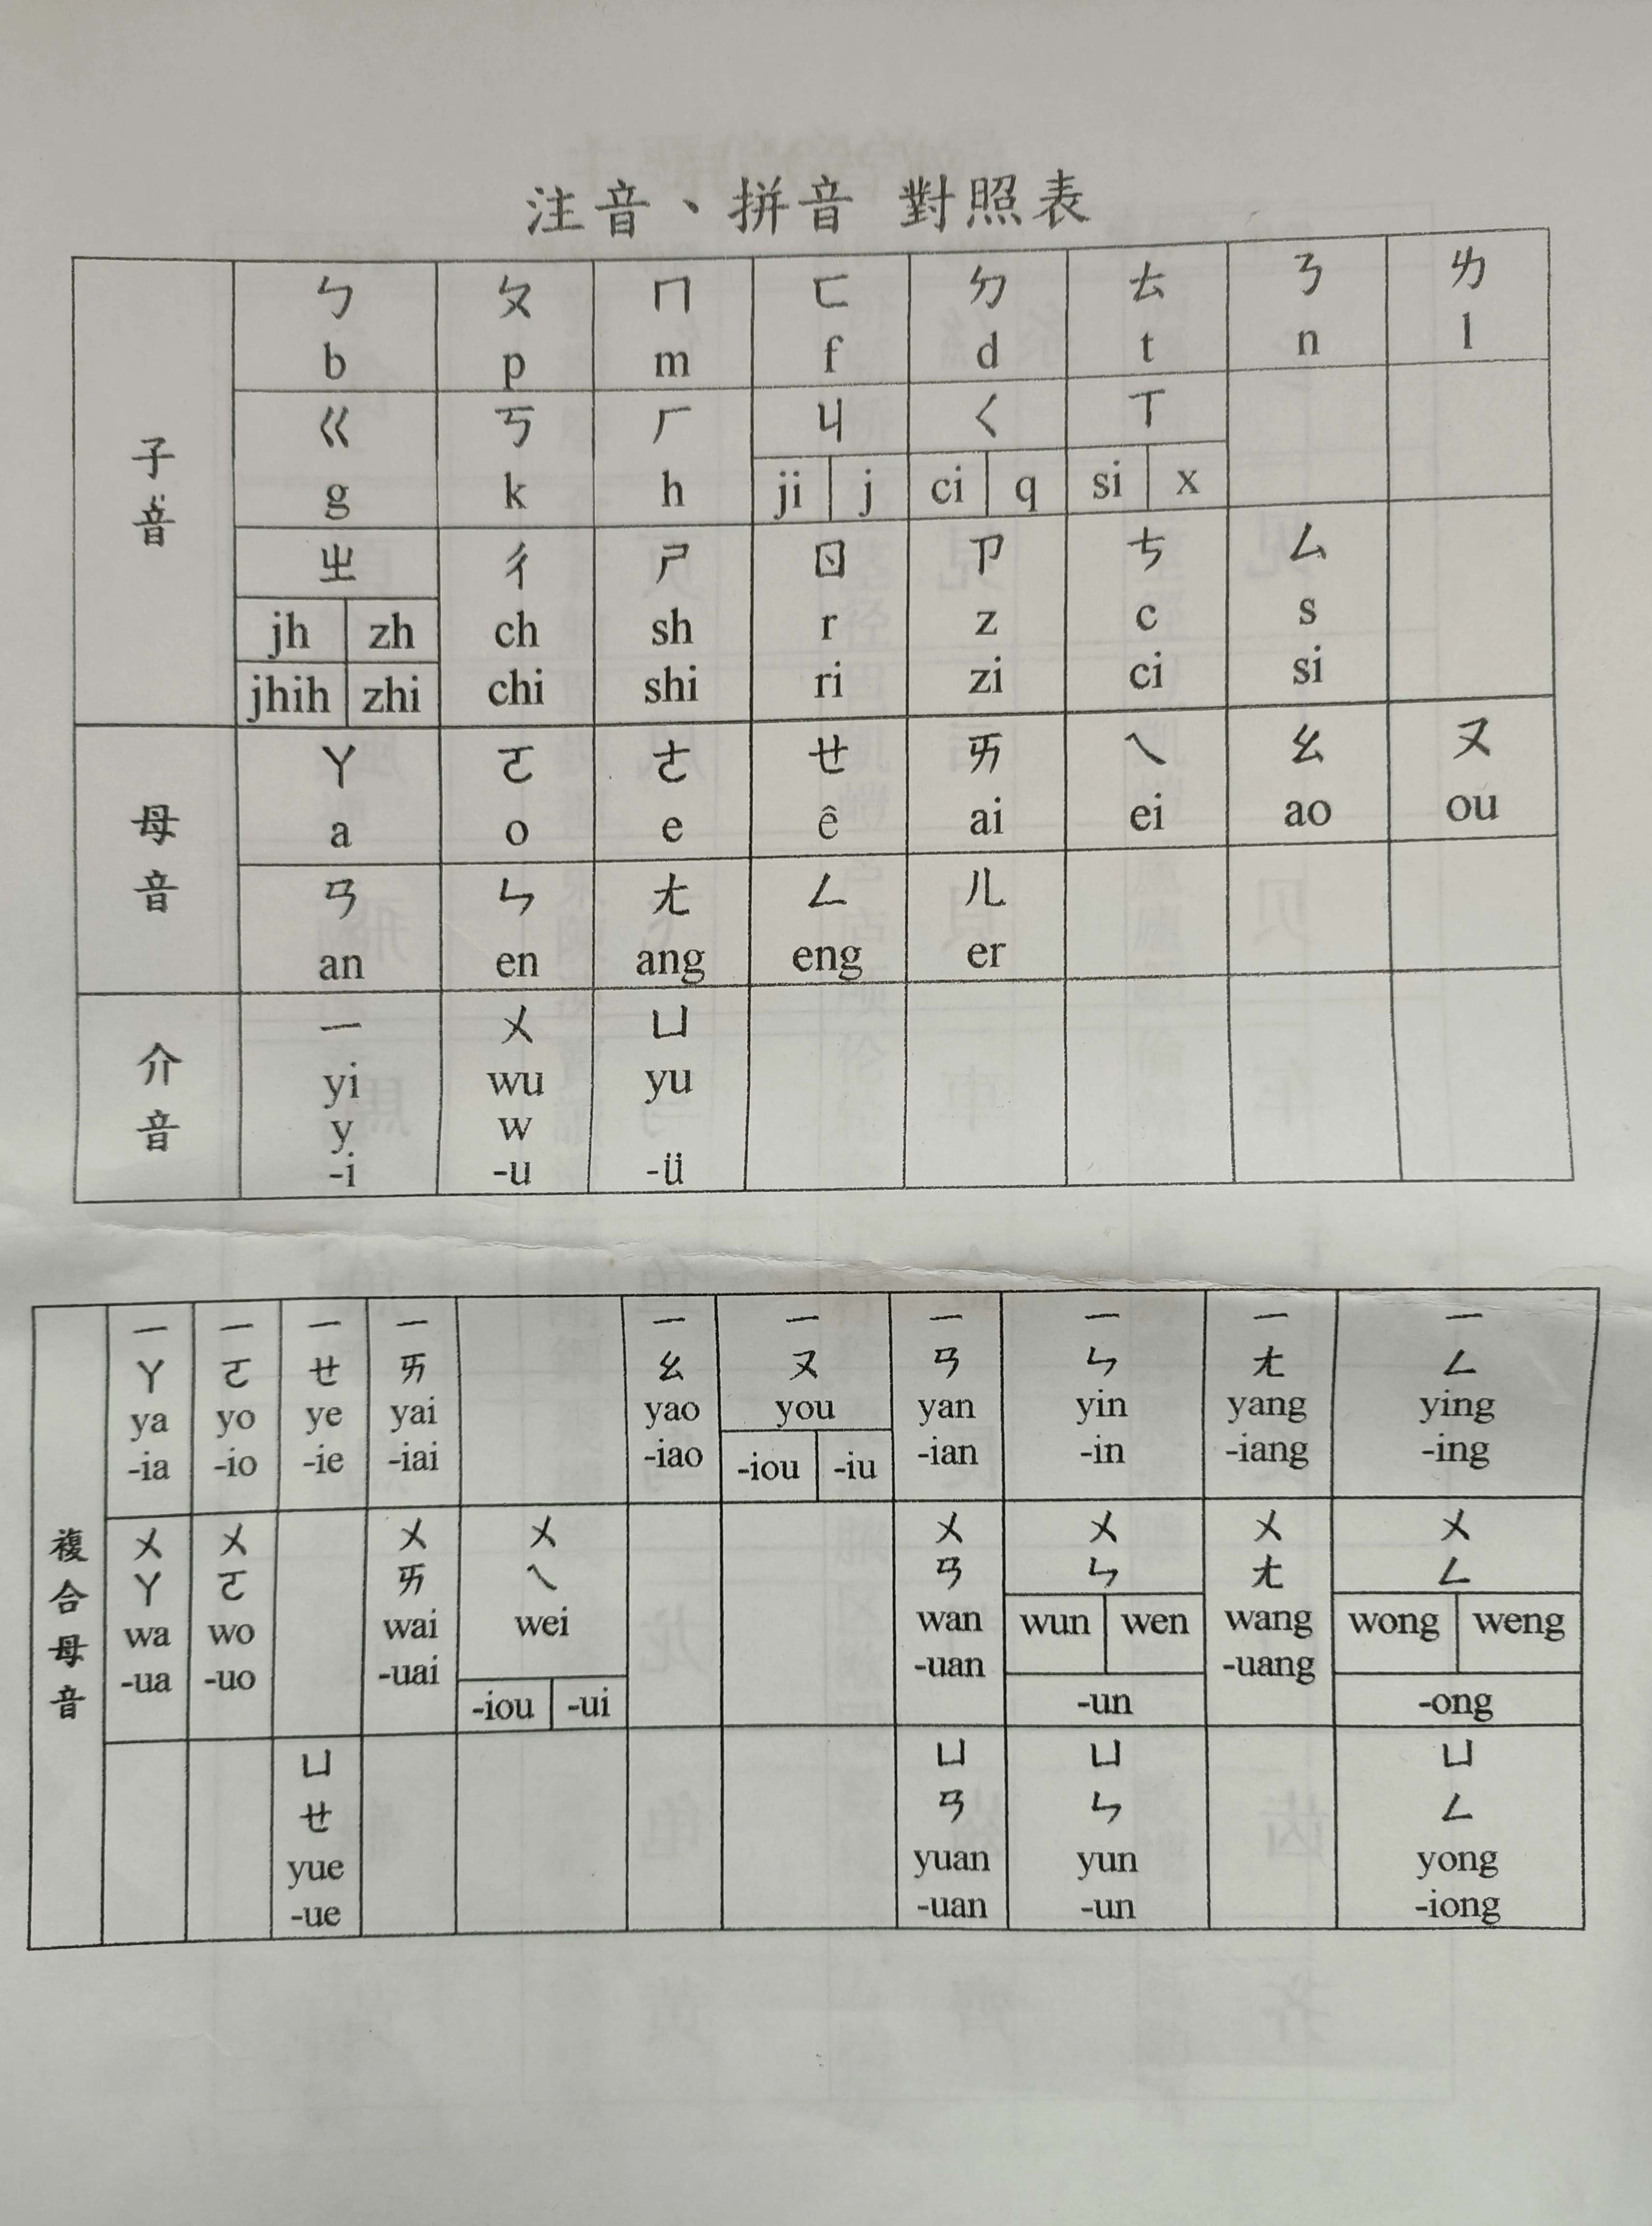 注音、拼音 對照表
子音
ㄅ ㄆ ㄇ ㄈ ㄉ ㄊ ㄋ ㄌ
b p m f d t n l
ㄍ ㄎ ㄏ ㄐ ㄑ ㄒ
g k h ji j ci q si x
ㄓ ㄔ ㄕ ㄖ ㄗ ㄘ ㄙ
jh zh ch sh r z c s
jhih zhi chi shi ri zi ci si
母音
ㄚ ㄛ ㄜ ㄝ ㄞ ㄟ ㄠ ㄡ
a o e ê ai ei ao ou
ㄢ ㄣ ㄤ ㄥ ㄦ
an en ang eng er
介音
ㄧ ㄨ ㄩ
yi wu yu
y w
-i -u -ü
複合母音
ㄧ ㄧ ㄧ ㄧ ㄧ ㄧ ㄧ ㄧ ㄧ ㄧ
ㄚ ㄛ ㄝ ㄞ ㄠ ㄡ ㄢ ㄣ ㄤ ㄥ
ya yo ye yai yao you yan yin yang ying
-ia -io -ie -iai -iao -iou -iu -ian -in -iang -ing
ㄨ ㄨ ㄨ ㄨ ㄨ ㄨ ㄨ ㄨ
ㄚ ㄛ ㄞ ㄟ ㄢ ㄣ ㄤ ㄥ
wa wo wai wei wan wun wen wang wong weng
-ua -uo -uai -iou -ui -uan -un -uang -ong
ㄩ ㄩ ㄩ ㄩ
ㄝ ㄢ ㄣ ㄥ
yue yuan yun yong
-ue -uan -un -iong